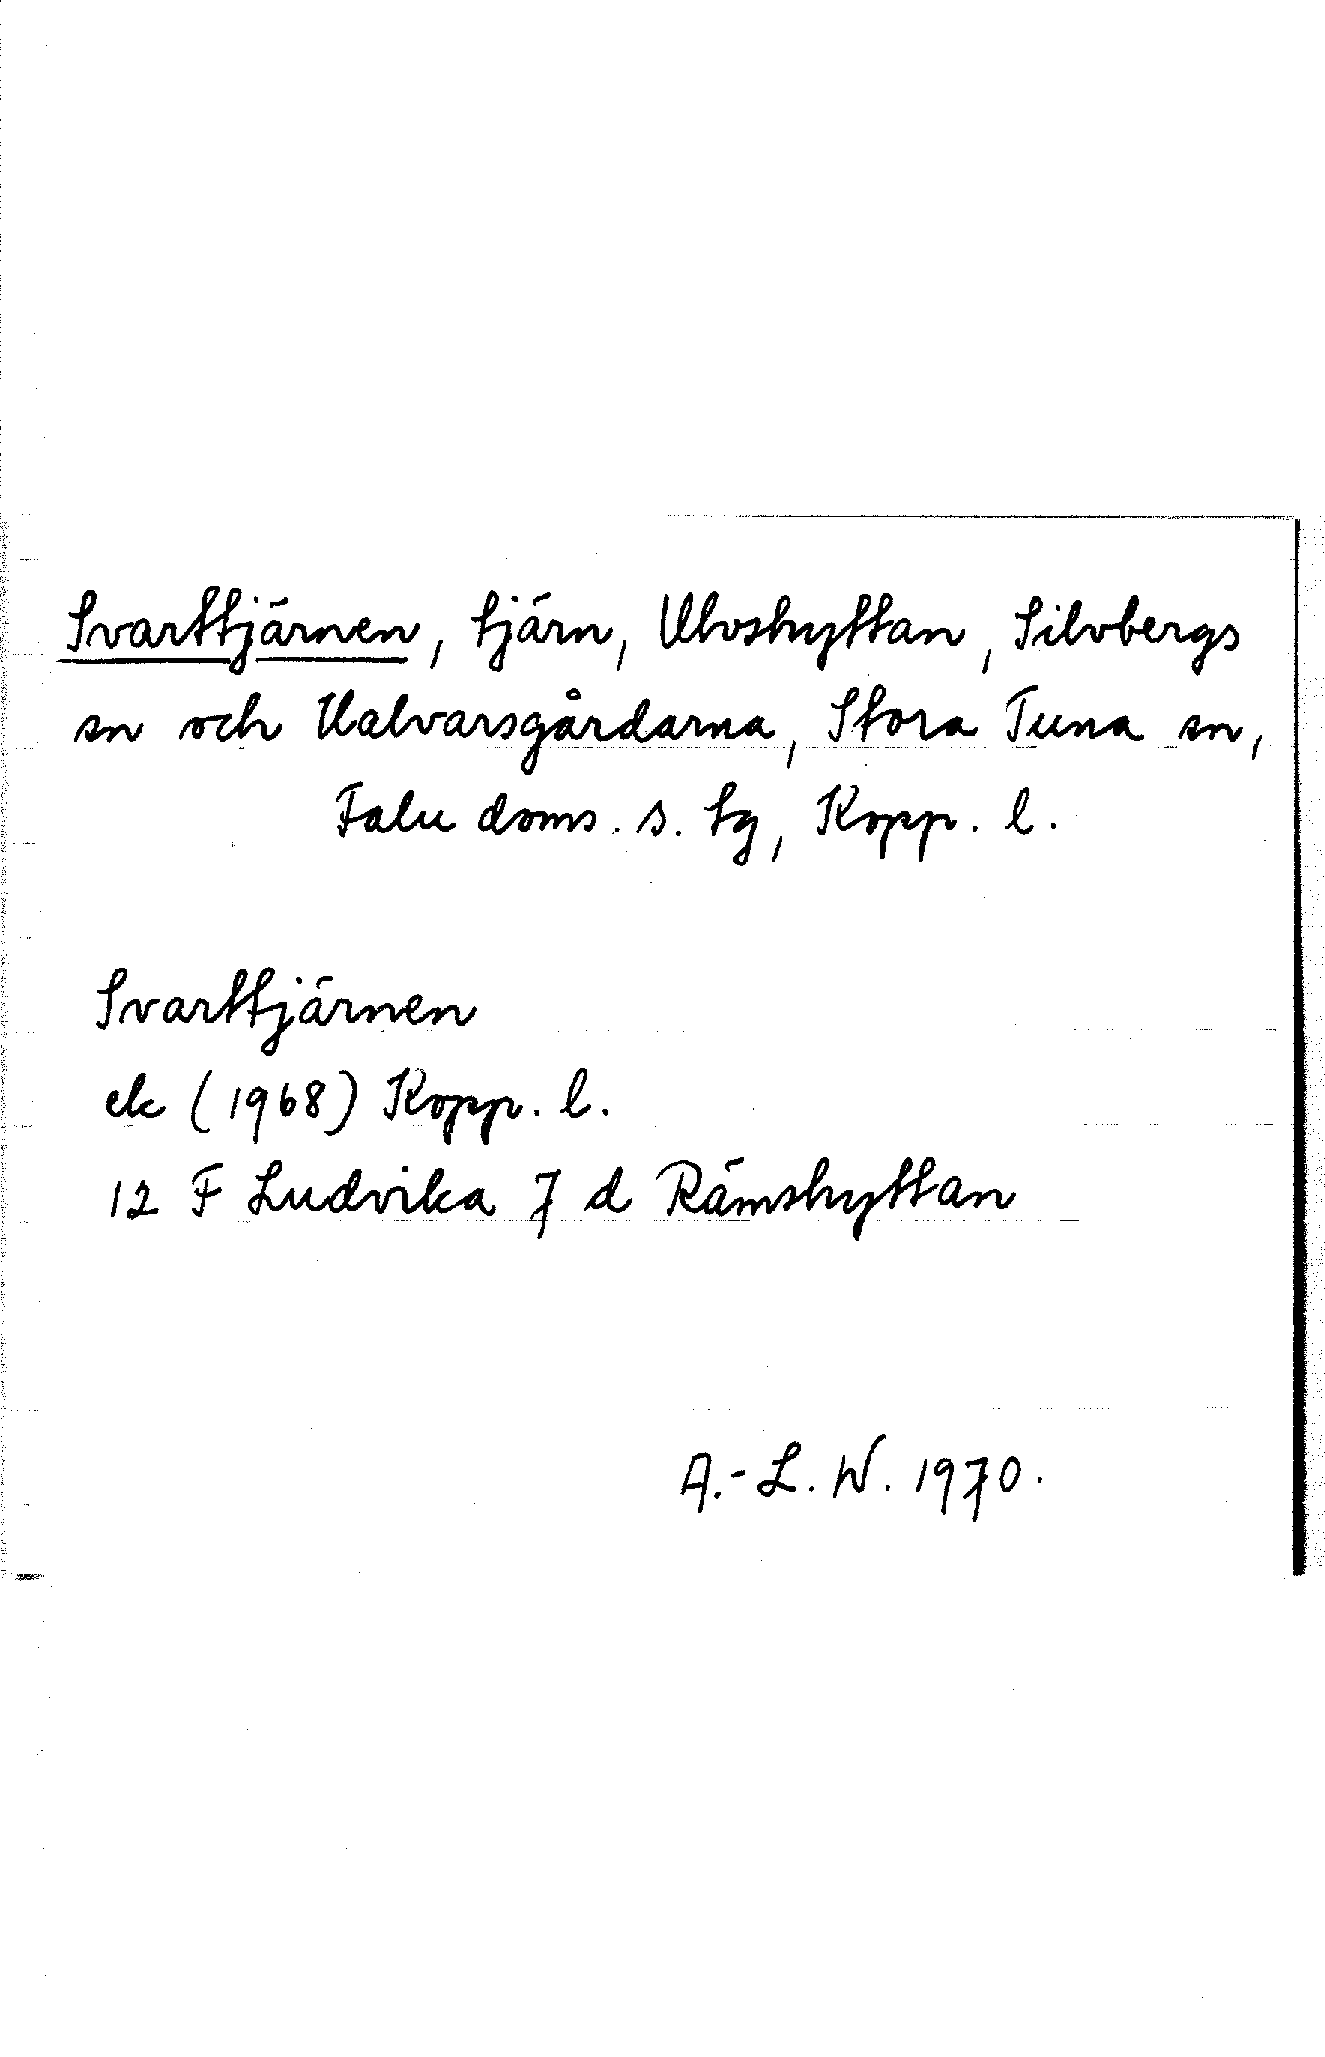 Svarttjärnen, tjärn, Ulvshyttan, Silvbergs
sn och Halvarsgårdarna, Stora Tuna sn,
Falu doms. s. tg, Kopp. l.
Svarttjärnen
ek (1968) Kopp. l.
12 F Ludvika 7 d Rämshyttan
A.-L. W. 1970.